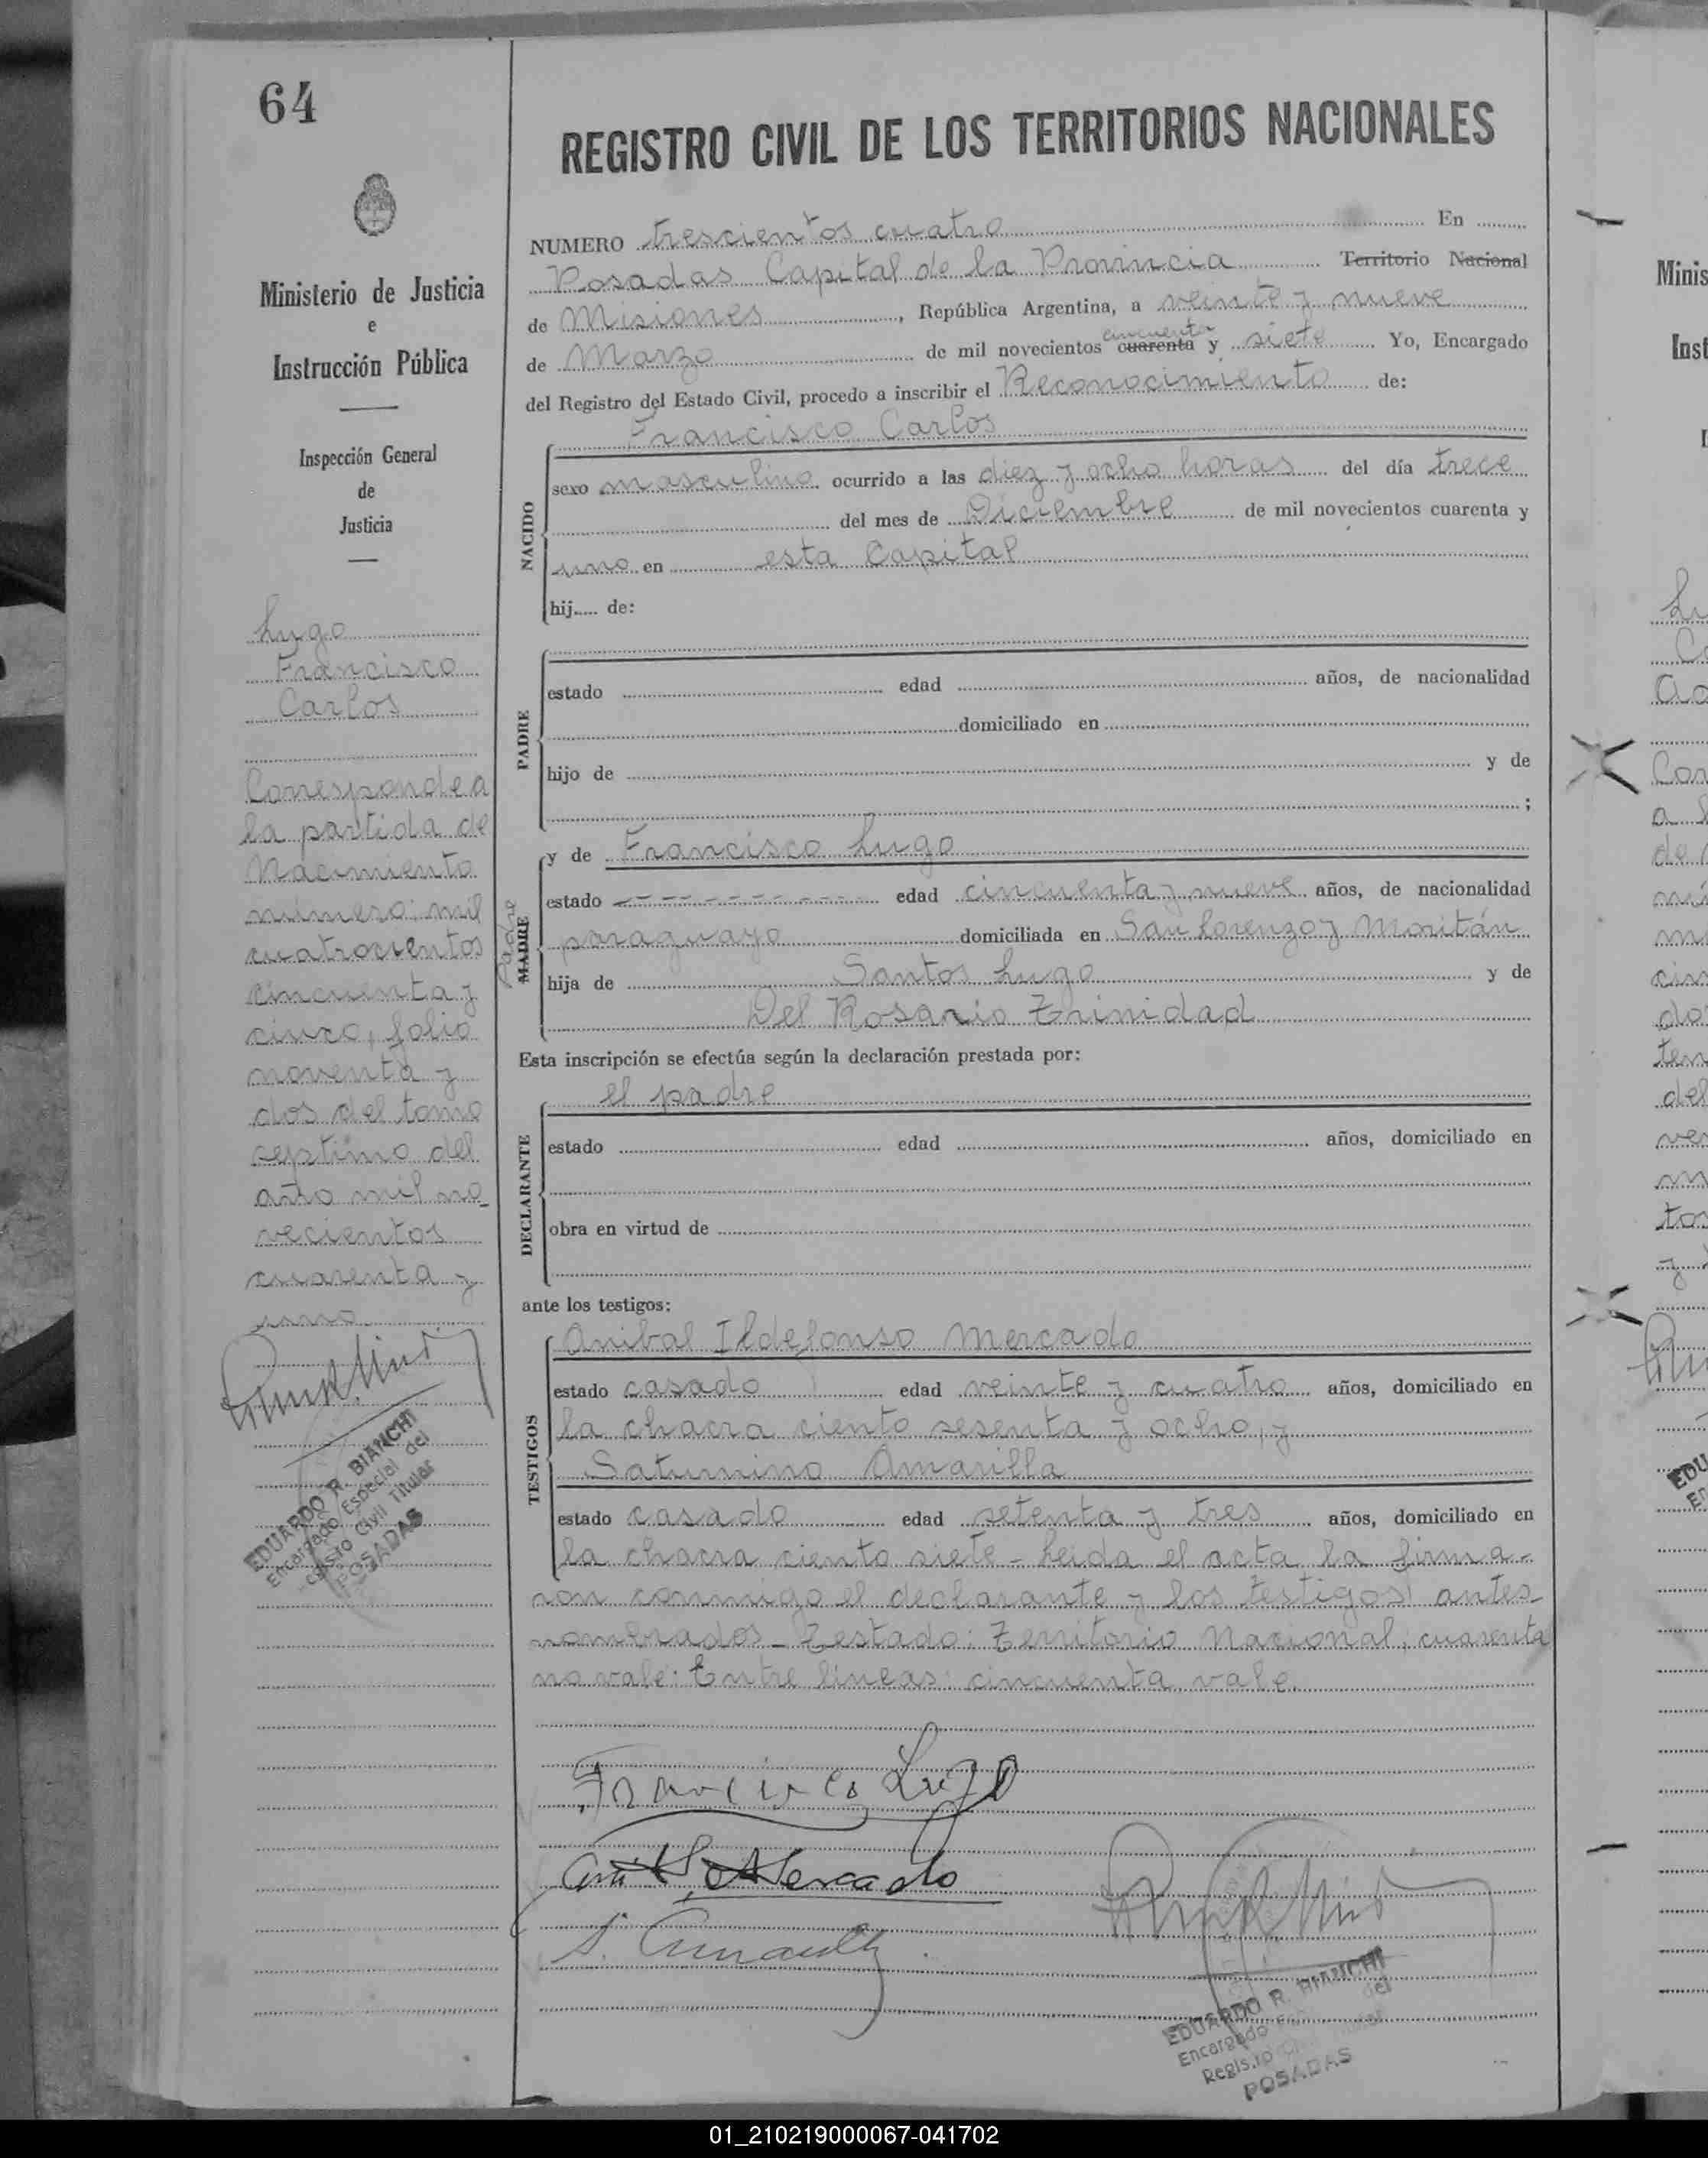 64
Ministerio de Justicia
e
Instrucción Pública
Inspección General
de
Justicia
Lugo
Francisco
Carlos
Corresponde a
la partida de
Nacimiento
número: mil
cuatrocientos
cincuenta y
cinco, folio
noventa y
dos del tomo
septimo del
año mil no_
vecientos
cuarenta y
uno
EDUARDO R. BIANCHI
Encargado Especial del
Civil Titular
POSADAS
REGISTRO CIVIL DE LOS TERRITORIOS NACIONALES
NUMERO trescientos cuatro En
Posadas Capital de la Provincia Territorio Nacional
de Misiones, República Argentina, a veinte y nueve
de Marzo de mil novecientos cuarenta cincuenta y siete Yo, Encargado
del Registro del Estado Civil, procedo a inscribir el Reconocimiento de:
NACIDO
Francisco Carlos
sexo masculino ocurrido a las diez y ocho horas del día trece
del mes de Diciembre de mil novecientos cuarenta y
uno en esta Capital
hij..... de:
PADRE
estado edad años, de nacionalidad
domiciliado en
hijo de y de
;
Padre MADRE
y de Francisco Lugo
estado - - - - - - - - - edad cincuenta y nueve años, de nacionalidad
paraguayo domiciliada en San Lorenzo y Moritán
hija de Santos Lugo y de
Del Rosario Trinidad
Esta inscripción se efectúa según la declaración prestada por:
DECLARANTE
el padre
estado edad años, domiciliado en
obra en virtud de
ante los testigos:
TESTIGOS
Anibal Ildefonso Mercado
estado casado edad veinte y cuatro años, domiciliado en
la chacra ciento sesenta y ocho, y
Saturnino Amarilla
estado casado edad setenta y tres años, domiciliado en
la chacra ciento siete - Leida el acta la firma-
ron conmigo el declarante y los testigos antes_
nombrados - Testado: Territorio Nacional, cuarenta
no vale: Entre lineas: cincuenta vale.
Francisco Lugo
Mercado
EDUARDO R. BIANCHI
Encargado del
Registro
POSADAS
Minis
Inst
01_210219000067-041702